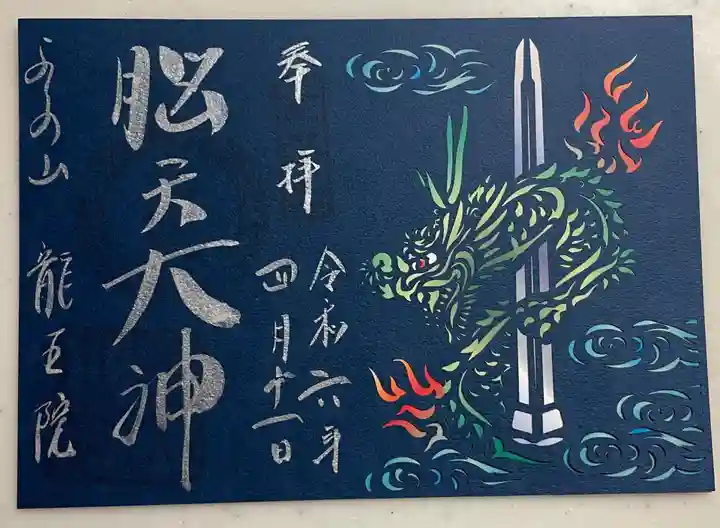 奉拝
令和六年
四月十一日
脳天大神
よしの山 龍王院